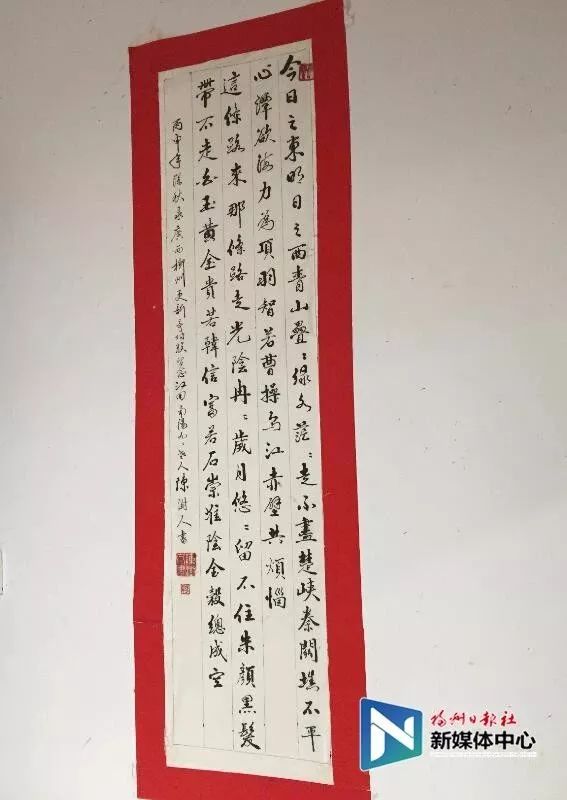 今日之東明日之西青山疊〻綠水茫〻走不盡楚峽秦關填不平
心潭欲海力為項羽智若曹操烏江赤壁共煩惱
這條路來那條路走光陰冉〻歲月悠〻留不住朱顏黑髮
帶不走白玉黃金貴若韓信富若石崇淮陰金穀總成空
丙申年深秋录廣西柳州更新亭江田南陽老人陳澍人書
福州日报社
新媒体中心